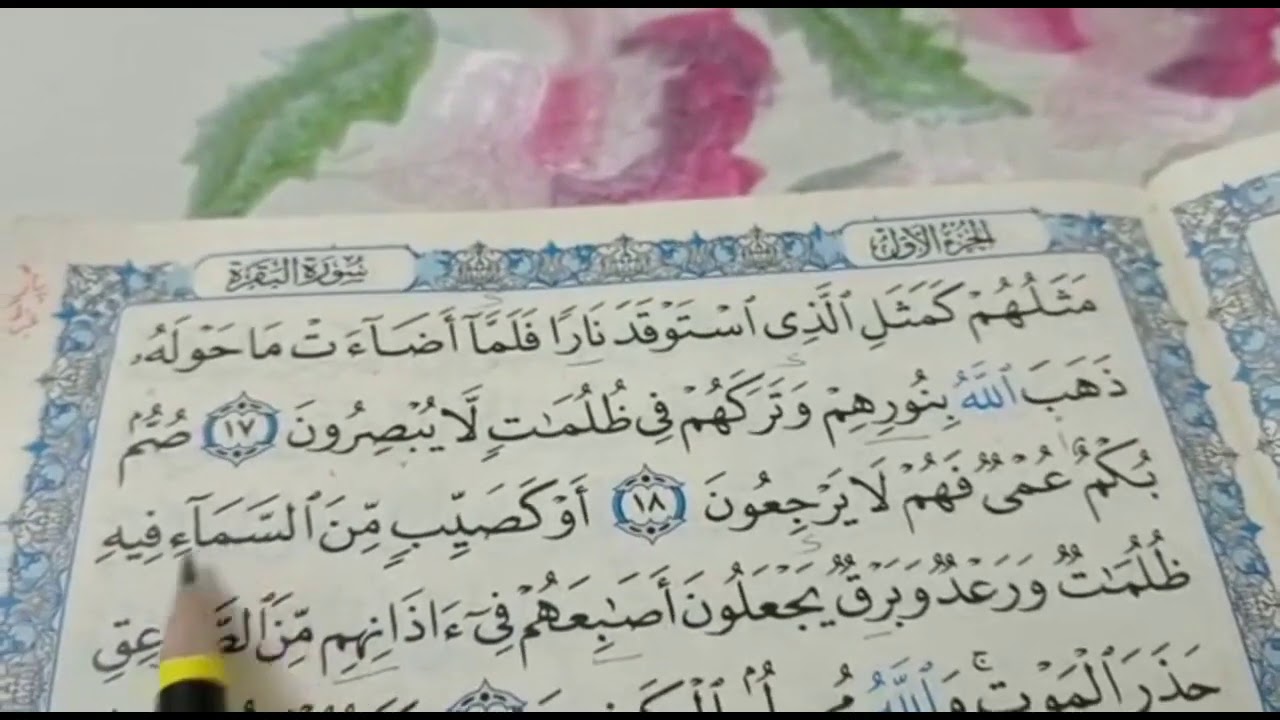 الجزء الأول
سورة البقرة
مَثَلُهُمۡ كَمَثَلِ ٱلَّذِى ٱسۡتَوۡقَدَ نَارًا فَلَمَّآ أَضَآءَتۡ مَا حَوۡلَهُۥ
ذَهَبَ ٱللَّهُ بِنُورِهِمۡ وَتَرَكَهُمۡ فِى ظُلُمَٰتٍ لَّا يُبۡصِرُونَ ١٧ صُمُّۢ
بُكۡمٌ عُمۡىٌ فَهُمۡ لَا يَرۡجِعُونَ ١٨ أَوۡ كَصَيِّبٍ مِّنَ ٱلسَّمَآءِ فِيهِ
ظُلُمَٰتٌ وَرَعۡدٌ وَبَرۡقٌ يَجۡعَلُونَ أَصَٰبِعَهُمۡ فِىٓ ءَاذَانِهِم مِّنَ
حَذَرَ ٱلۡمَوۡتِۚ وَٱللَّهُ